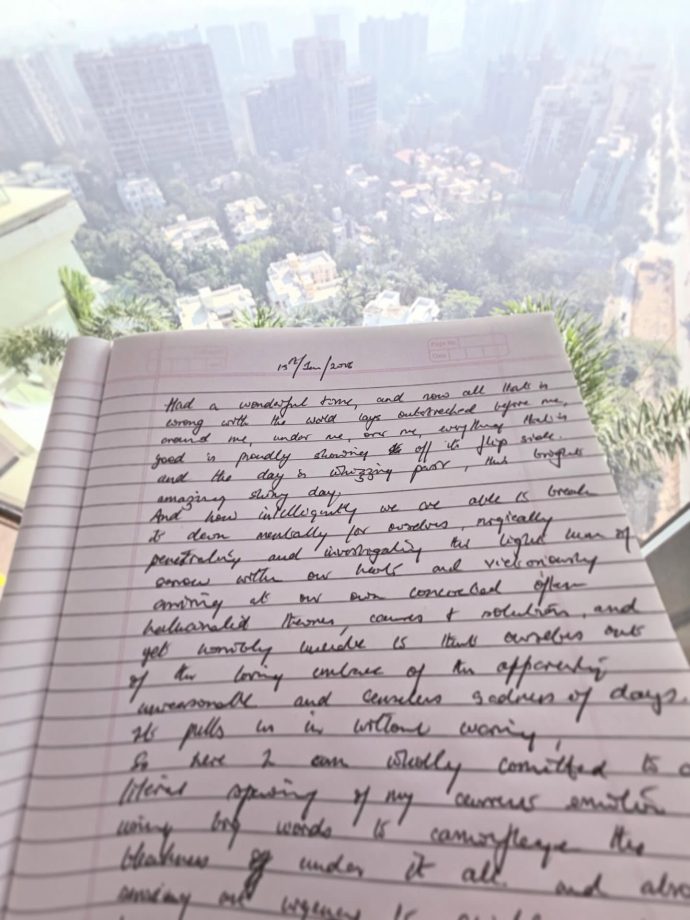 Page No.
Date
15th/Jan/2018
Had a wonderful time, and now all that is
wrong with the world lays outstretched before me,
around me, under me, over me, everything that is
good is proudly showing off its flip side.
and the day is whizzing past, this bright
amazing shiny day.
And how intelligently we are able to break
it down mentally for ourselves,
penetrating and investigating the
sorrow within our hearts and victoriously
arriving at our own concocted often
theories, causes & solutions, and
yet horribly to ourselves out
of the loving embrace of the apparently
unreasonable and senseless sadness of days.
It pulls us in without warning,
So here I am wholly comitted to a
literal spewing of my current emotion
using big words to camouflage the
bleakness of under it all. and also
an urgency to